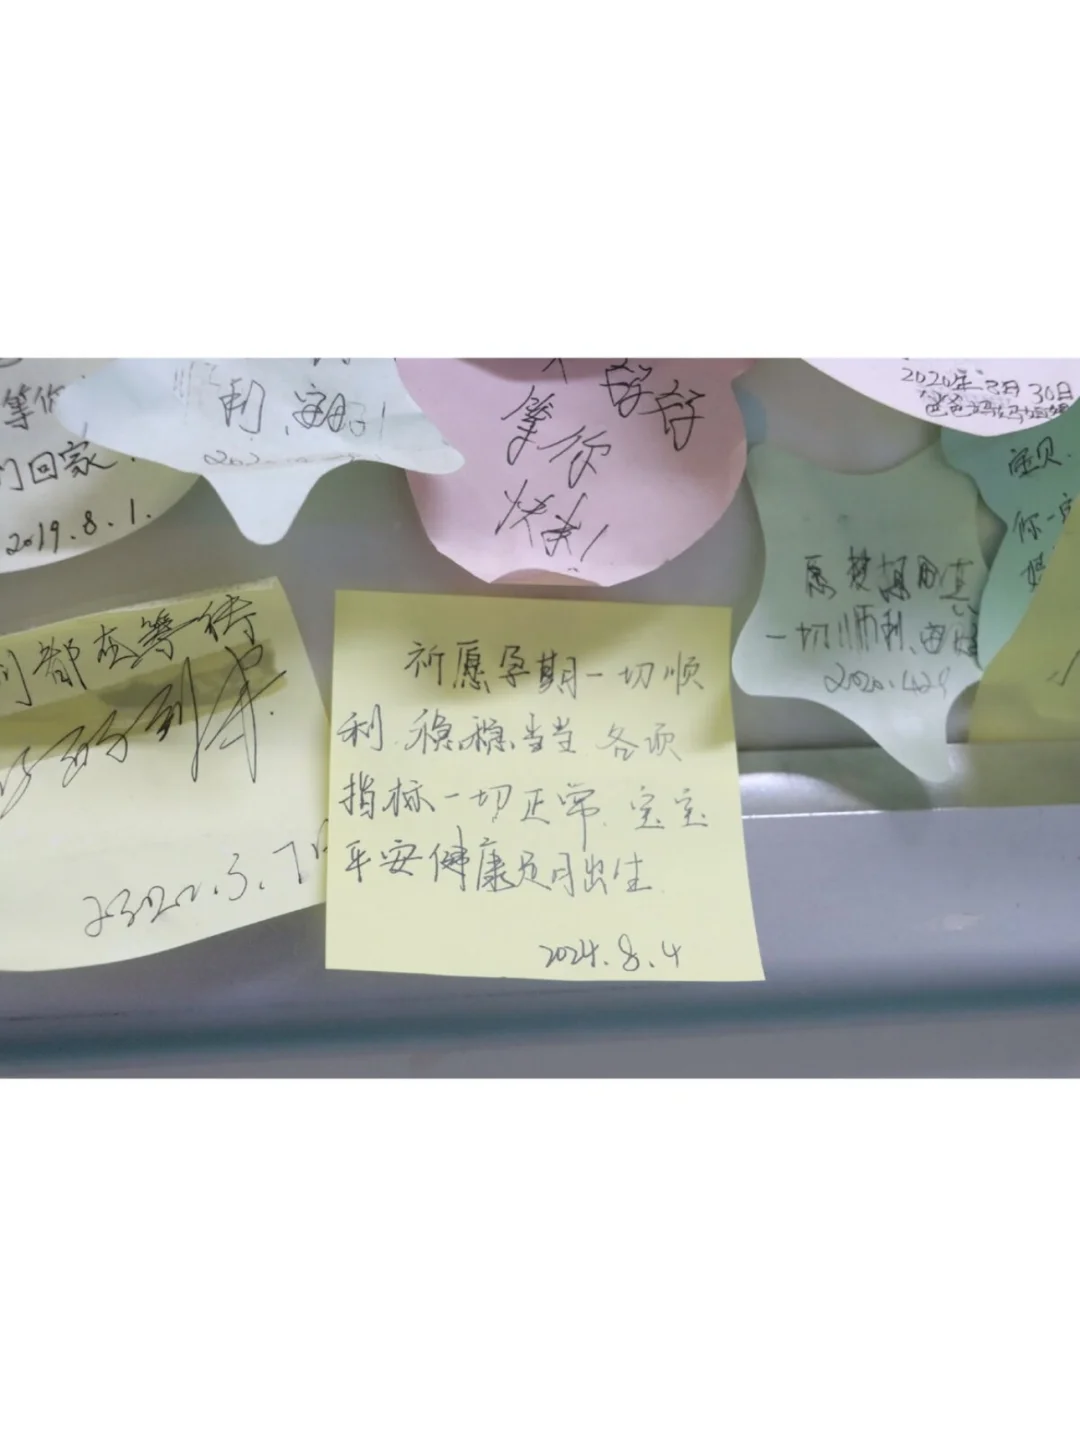 等你
门回家
2019.8.1.
顺
利
等你
快来!
2020年3月30日
宝贝
你一定
愿梦想成真
一切顺利
2020.4.29
们都在等待
的到来
2022.3.7
祈愿孕期一切顺
利.稳稳当当 各项
指标一切正常.宝宝
平安健康足月出生.
2024.8.4